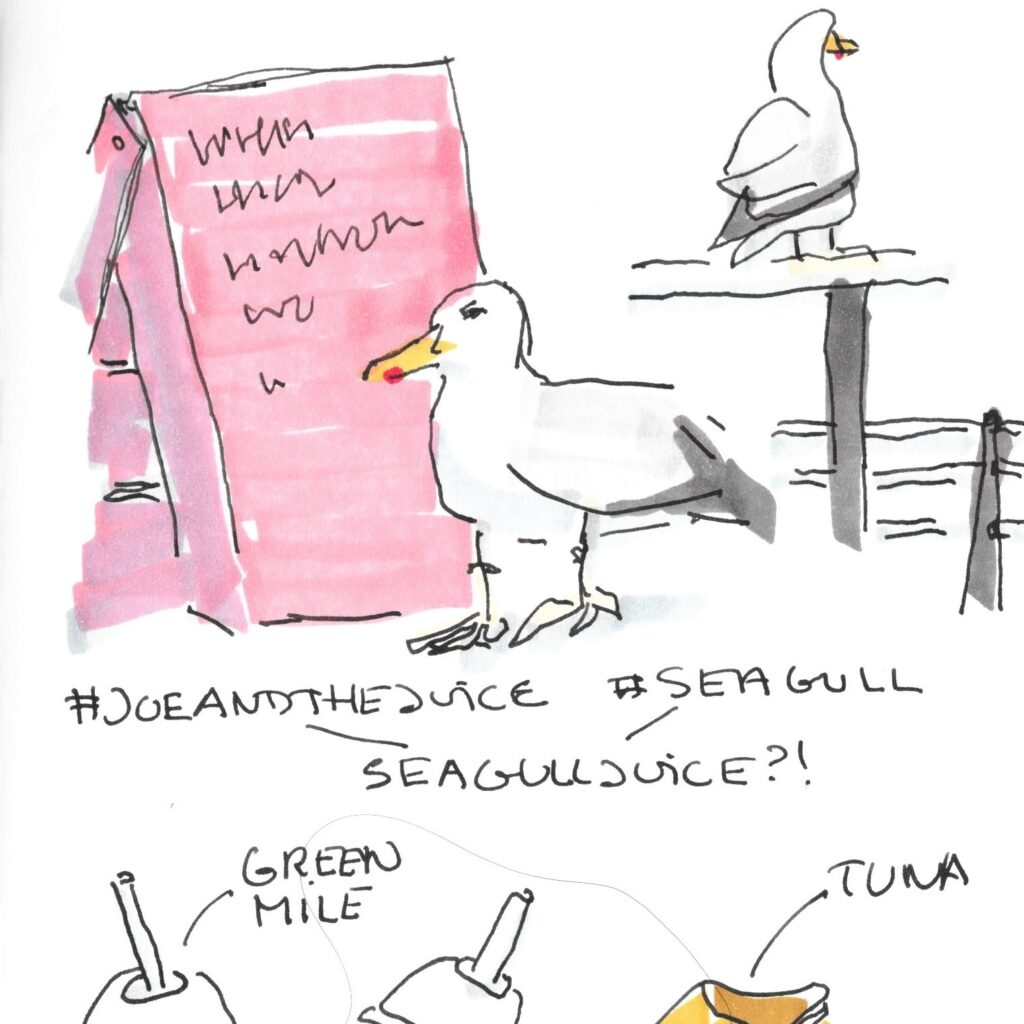 #JOEANDTHEJUICE #SEAGULL
SEAGULLJUICE?!
GREEN
MILE
TUNA